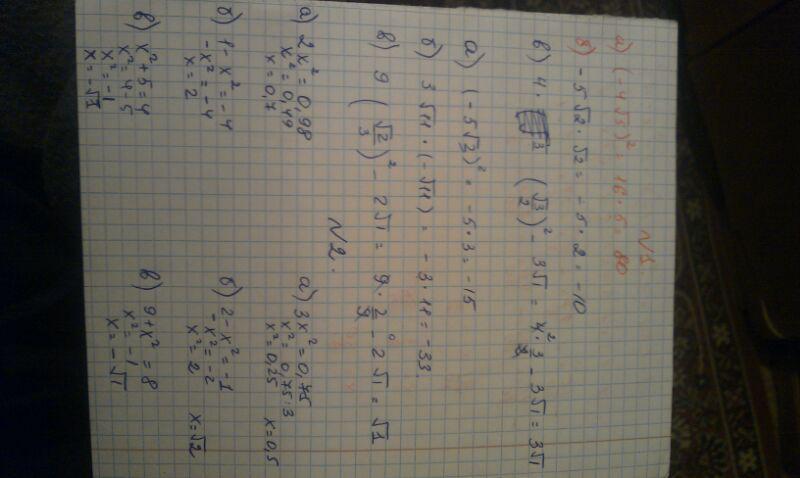 N1
а) (-4√5)² = 16·5 = 80
б) -5√2·√2 = -5·2 = -10
в) 4· (√3/2)² - 3√1 = 4·3/4 - 3√1 = 3√1
а) (-5√3)² = -5·3 = -15
б) 3√11·(-√11) = -3·11 = -33.
в) 9 (√2/3)² - 2√1 = 9·2/9 - 2√1 = √1
N2.
а) 2x² = 0,98
x² = 0,49
x = 0,7
а) 3x² = 0,75
x² = 0,75:3
x² = 0,25 x = 0,5
б) 1 - x² = -4
-x² = -4
x = 2
б) 2 - x² = -1
-x² = -2
x² = 2 x = √2
в) x² + 5 = 4
x² = 4-5
x² = -1
x = -√1
в) 9 + x² = 8
x² = -1
x = -√1